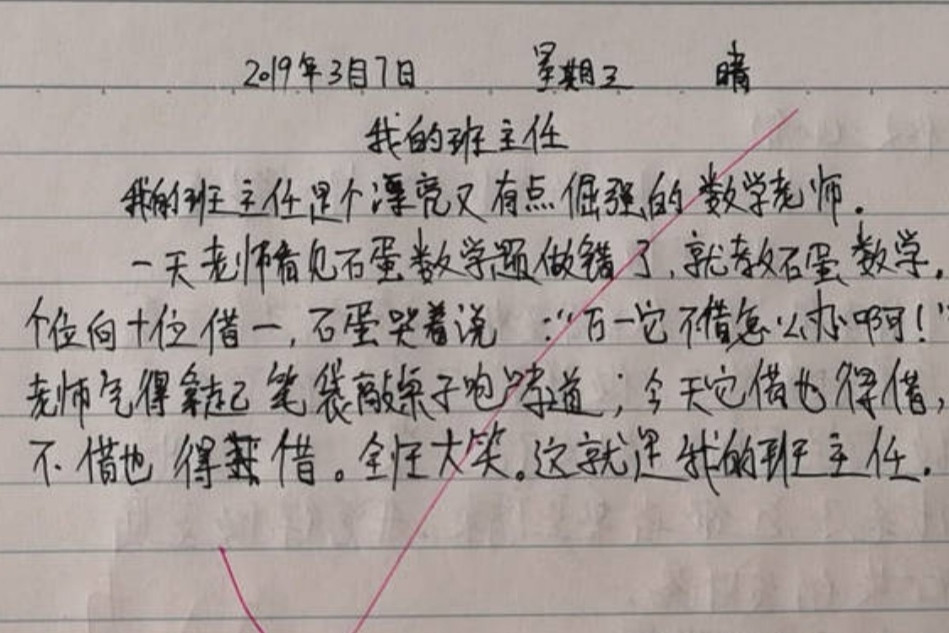 2019年3月7日 星期三 晴
我的班主任
我的班主任是个漂亮又有点倔强的数学老师.
一天老师看见石蛋数学题做错了,就教石蛋数学.
个位向十位借一,石蛋哭着说:“万一它不借怎么办啊!”
老师气得拿起笔袋敲桌子咆哮道;今天它借也得借,
不借也得借。全班大笑。这就是我的班主任.